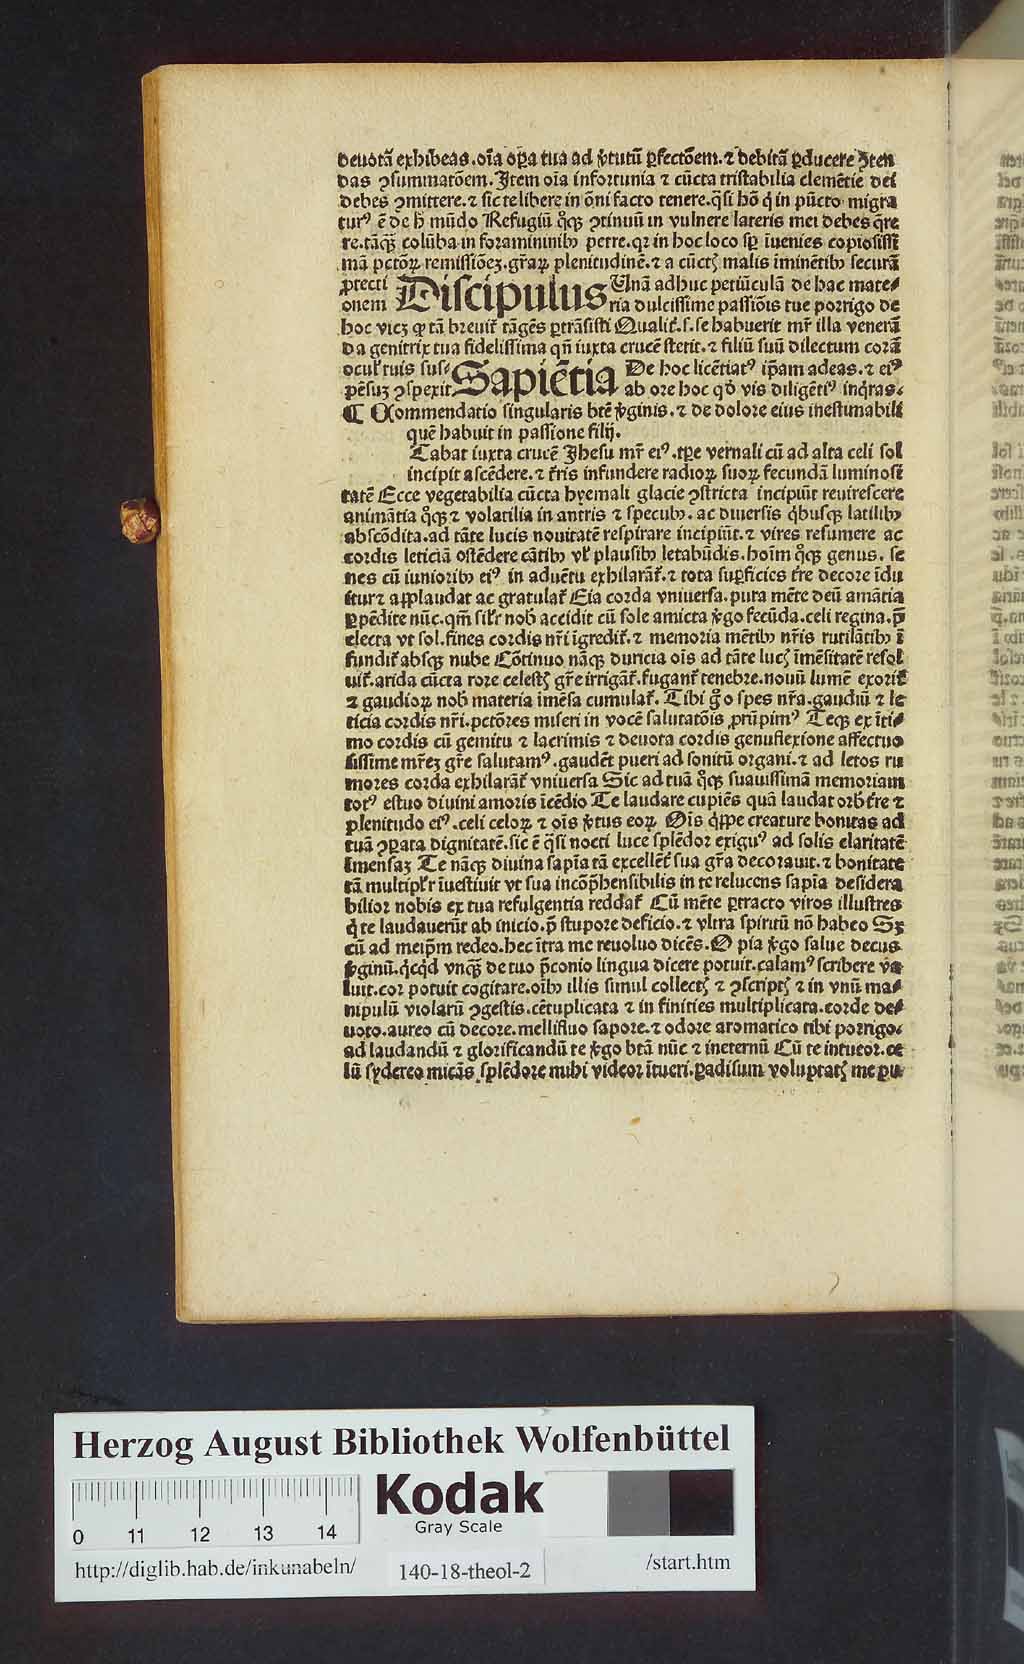 deuotā exhibeas. oīa oꝑa tua ad v̓tutū ꝑfectōem. ⁊ debitā ꝑducere Iten
das ꝯsummatōem. Item oīa infortunia ⁊ cūcta tristabilia clemētie dei
debes ꝯmittere. ⁊ sic te libere in oni facto tenere. q̄si hō q̇ in pūcto migra
turꝰ ē de h̄ mūdo Refugiū q̊qꝫ ꝯtinuū in vulnere lateris mei debes q̄re
re. tāqꝫ colūba in foraminibꝫ petre. qr in hoc loco sꝑ īuenies copiosissi
mā pctōꝝ remissiōeꝫ. gr̄aꝝ plenitudinē. ⁊ a cūctꝭ malis iminētibꝫ securā
ꝓtecti
onem Discipulus Unā adhuc petiūculā de hac mate⸗
ria dulcissime passiōis tue porrigo de
hoc vicꝫ qꝫ tā breuiť tāgēs ꝑtrāsisti Qualiť. s. se habuerit mr̄ illa venerā
da genitrix tua fidelissima qn̄ iuxta crucē stetit. ⁊ filiū suū dilectum corā
ocuľ tuis sus⸗
pēsuꝫ ꝯspexit Sapiētia De hoc licētiatꝰ ip̄am adeas. ⁊ eiꝰ
ab ore hoc qđ vis diligētiꝰ inq̇ras.
¶ Commendatio singularis btē v̓ginis. ⁊ de dolore eius inestimabili
quē habuit in passione filij.
Tabat iuxta crucē Jhesu mr̄ eiꝰ. tꝑe vernali cū ad alta celi sol
incipit ascēdere. ⁊ tr̄ris infundere radioꝝ suoꝝ fecundā luminosi
tatē Ecce vegetabilia cūcta hyemali glacie ꝯstricta incipiūt reuirescere
animātia q̊qꝫ ⁊ volatilia in antris ⁊ specubꝫ. ac diuersis q̇busqꝫ latilibꝫ
abscōdita. ad tāte lucis nouitatē respirare incipiūt. ⁊ vires resumere ac
cordis leticiā ostēdere cātibꝫ vľ plausibꝫ letabūdis. hoīm q̊qꝫ genus. se
nes cū iunioribꝫ eiꝰ in aduētu exhilarāť. ⁊ tota suꝑficies tr̄e decore īdu
itur ⁊ applaudat ac gratulať Eia corda vniuersa. pura mēte deū amātia
ꝑpēdite nūc. qm̄ siľr nob̄ accidit cū sole amicta v̓go fecūda. celi regina. p̄
electa vt sol. fines cordis nr̄i īgrediť. ⁊ memoria mētibꝫ nr̄is rutilātibꝫ ī
fundiť absqꝫ nube Cōtinuo nāqꝫ duricia oīs ad tāte lucꝭ īmēsitatē resol
uiť. arida cūcta rore celestꝭ gr̄e irrigāť. fuganť tenebre. nouū lumē exoriť
⁊ gaudioꝝ nob̄ materia īmēsa cumulať. Tibi g̊ o spes nr̄a. gaudiū ⁊ le
ticia cordis nr̄i. pctōres miseri in vocē salutatōis ꝓrūpimꝰ Teqꝫ ex īti⸗
mo cordis cū gemitu ⁊ lacrimis ⁊ deuota cordis genuflexione affectuo
sissime mr̄eꝫ gr̄e salutamꝰ. gaudēt pueri ad sonitū organi. ⁊ ad letos ru
mores corda exhilarāť vniuersa Sic ad tuā q̊qꝫ suauissimā memoriam
totꝰ estuo diuini amoris īcēdio Te laudare cupiēs quā laudat orb̄ tr̄e ⁊
plenitudo eiꝰ. celi celoꝝ ⁊ oīs v̓tus eoꝝ Oīs q̇ppe creature bonitas ad
tuā ꝯꝑata dignitatē. sic ē q̄si nocti luce splēdor exiguꝰ ad solis claritatē
Imensaꝫ Te nāqꝫ diuina sapīa tā excellēť sua gr̄a decorauit. ⁊ bonitate
tā multipľr īuestiuit vt sua incōp̄hensibilis in te relucens sapīa desidera
bilior nobis ex tua refulgentia reddať Cū mēte ꝑtracto viros illustres
q̇ te laudauerūt ab inicio. p̄ stupore deficio. ⁊ vltra spiritū nō habeo Sꝫ
cū ad meip̄m redeo. hec ītra me reuoluo dicēs. O pia v̓go salue decus
v̓ginū. q̇cq̇d vnqꝫ de tuo p̄conio lingua dicere potuit. calamꝰ scribere va
luit. cor potuit cogitare. oībꝫ illis simul collectꝭ ⁊ ꝯscriptꝭ ⁊ in vnū ma⸗
nipulū violarū ꝯgestis. cētuplicata ⁊ in finities multiplicata. corde de⸗
uoto. aureo cū decore. mellifluo sapore. ⁊ odore aromatico tibi porrigo.
ad laudandū ⁊ glorificandū te v̓go btā nūc ⁊ ineternū Cū te intueor. ce
lū sydereo micās splēdore mihi videor ītueri. ꝑadisum voluptatꝭ me pu
Herzog August Bibliothek Wolfenbüttel
Kodak
Gray Scale
0 11 12 13 14
http://diglib.hab.de/inkunabeln/ 140-18-theol-2 /start.htm